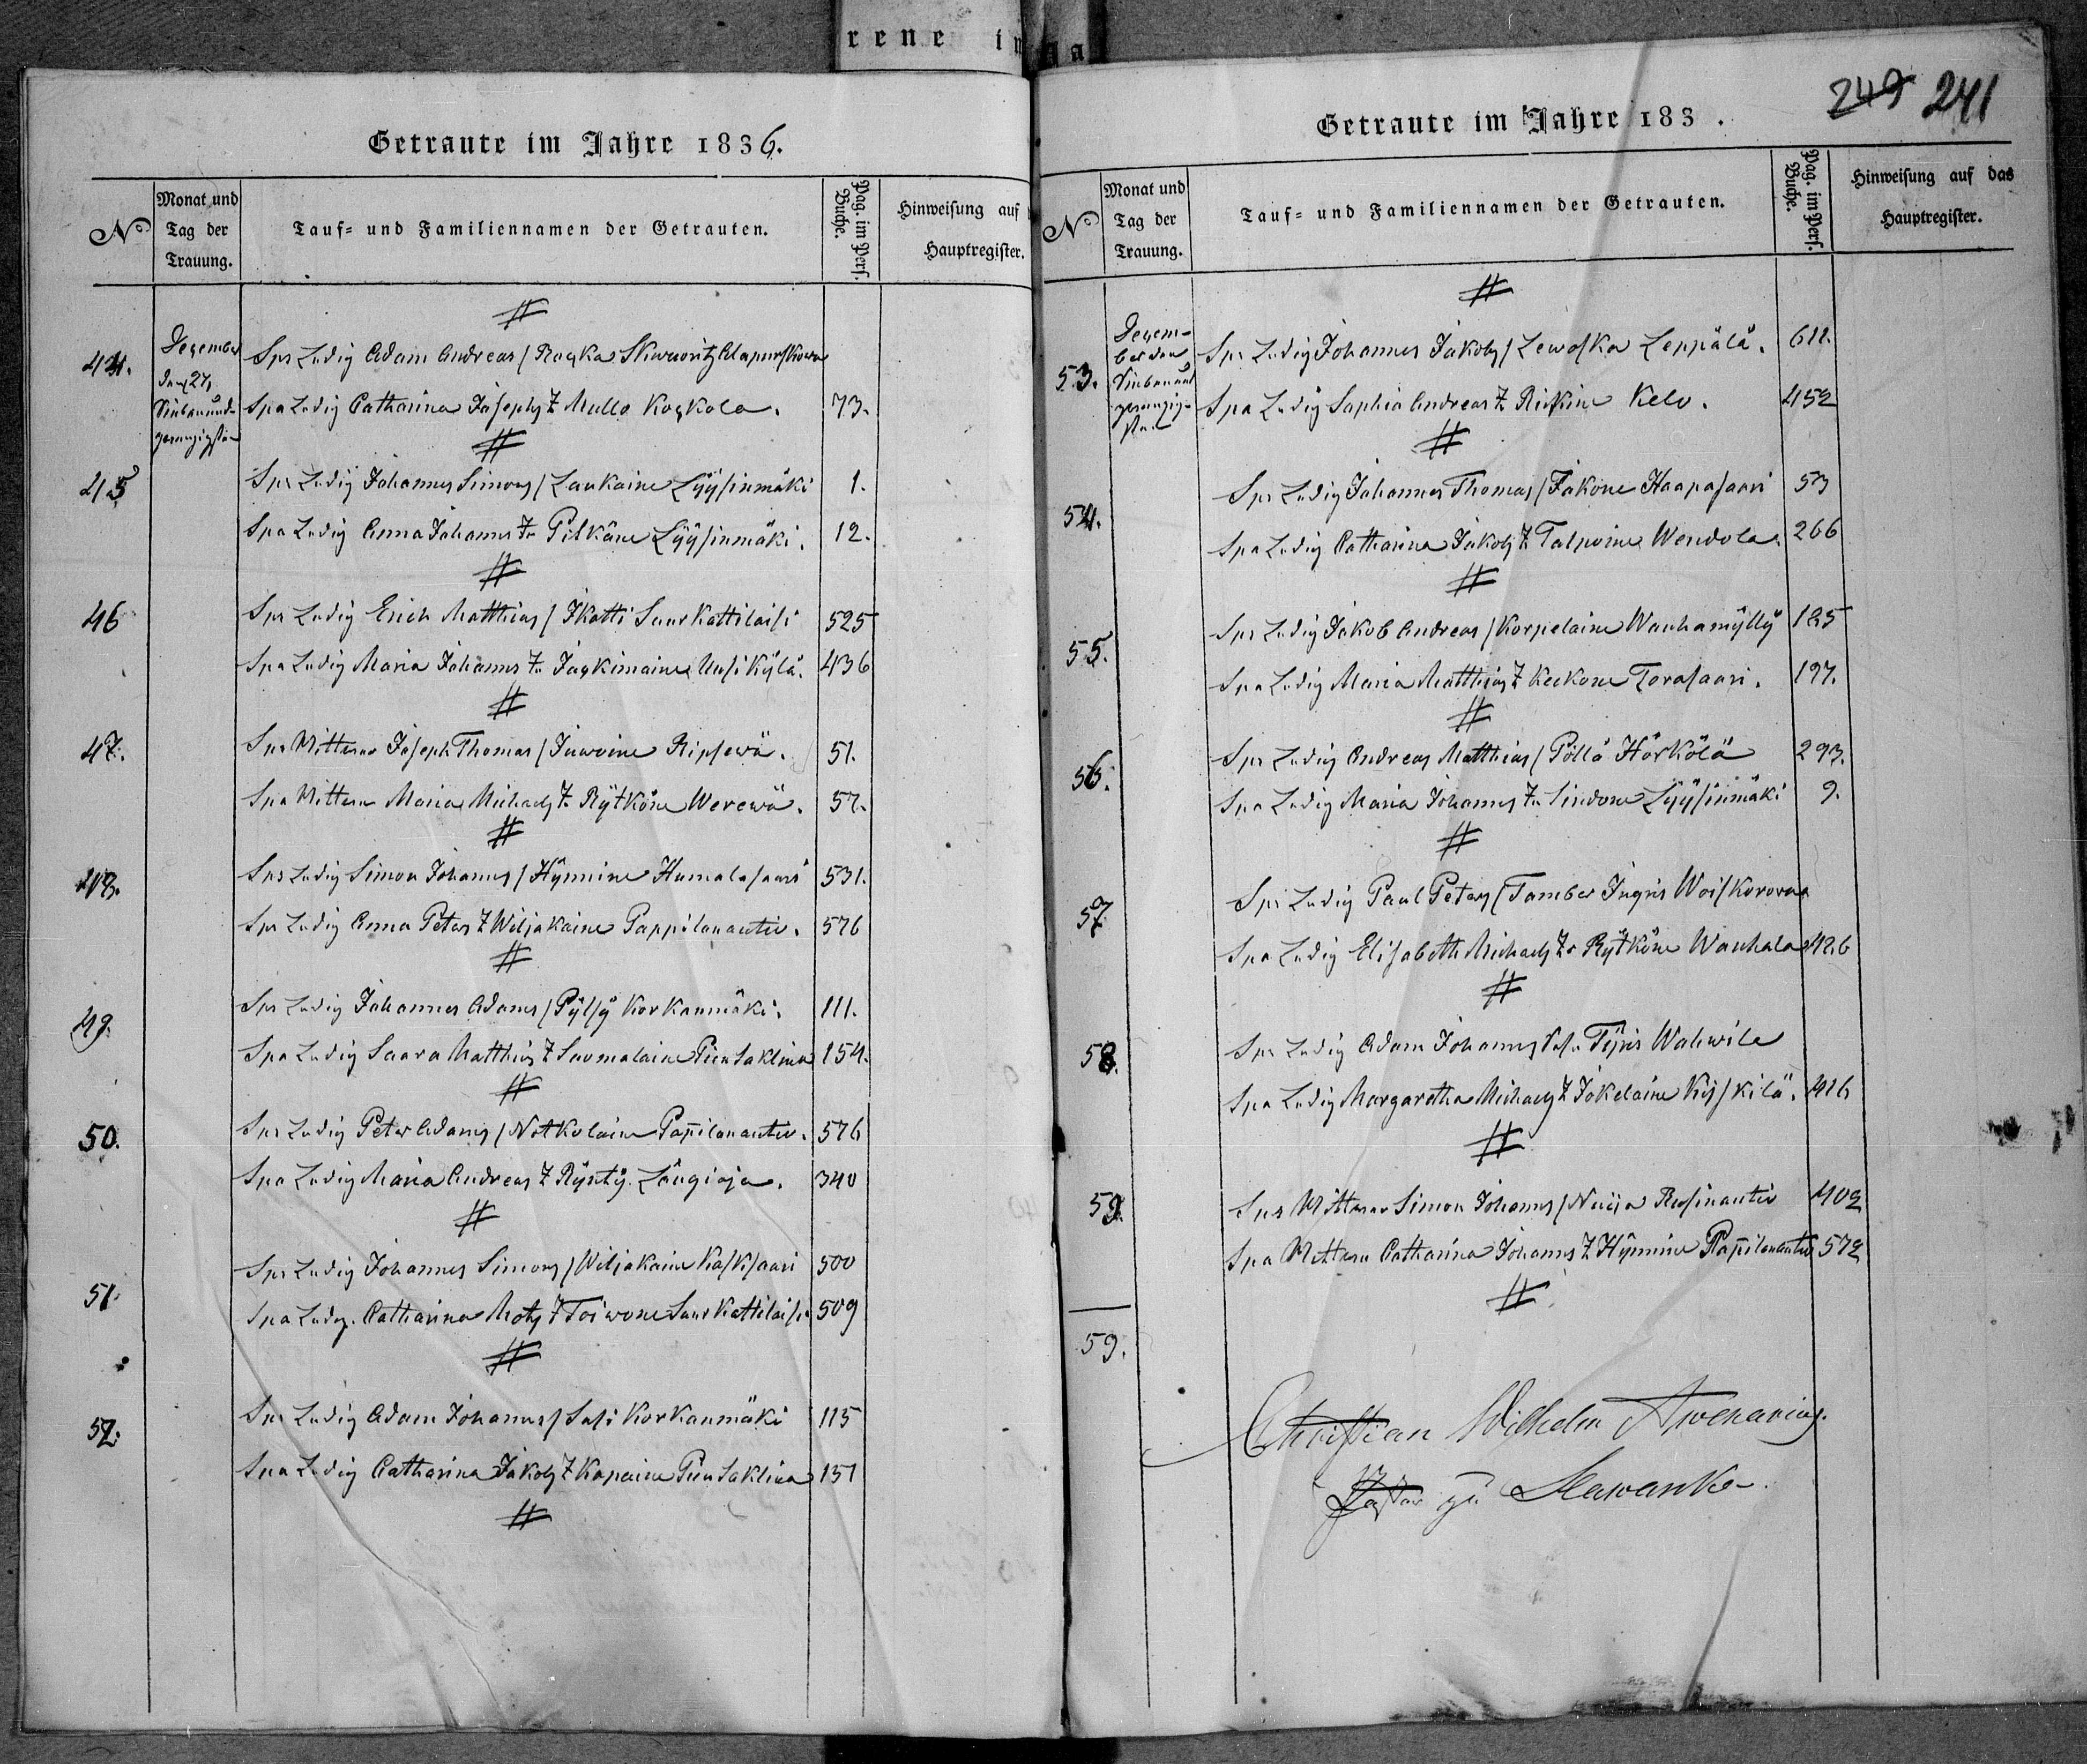 rene in
Getraute im Jahre 1836.
No
Monat und
Tag der
Trauung.
Tauf- und Familiennamen der Getrauten.
Pag. im Pers. Buche.
Hinweisung auf
Hauptregister.
44. Dezember Spr Ledig Adam Andreas
Spa Ledig Catharina Josephs T Mullo Koskola. 73.
45 Spr Ledig Johannes Simons / Laukaine Lyysinmäki 1.
Spa Ledig Anna Johannes Tr Pitkäne Lyysinmäki. 12.
46 Spr Ledig Erich Matthias / Ikatti Suurkattilaisi 525
Spa Ledig Maria Johannes Tr Uusikylä. 436
47. Spr Wittwer Joseph Thomas / 51.
Spa Wittwe Maria Michaels Tr Rytköne Werewä. 57.
48. Spr Ledig Simon Johannes / Hynnine Humalasaari 531.
Spr Ledig Anna Peters T Wiljakaine Pappilanautio. 576
49. Spr Ledig Johannes Adams / Pylsy Korkanmäki. 111.
Spa Ledig Saara Matthias T Suomalaine Pien Saklina 154.
50. Spr Ledig Peter Adams / Notkolaine Papilanautio. 576
Spa Ledig Maria Andreas T Rynty 340
51. Spr Ledig Johannes Simons / Wiljakaine Kaskisaari 500
Spa Ledig. Catharina Mats T Toiwone Suurkattilaisi 509
52. Spr Ledig Adam Johannes / Susi Korkanmäki 115
Spa Ledig Catharina Jakobs T Kapaine Pien Saklina 151
249 241
Getraute im Jahre 183 .
No
Monat und
Tag der
Trauung.
Tauf- und Familiennamen der Getrauten.
Pag. im Pers. Buche.
Hinweisung auf das
Hauptregister.
53. Dezember den Siebenundzwanzigsten Spr Ledig Johannes Jakobs / Lewoska Leppälä. 611.
Spa Ledig Sophia Andreas Tr Kelo. 452
54. Spr Ledig Johannes Thomas / Jakone Haapasaari 53
Spa Ledig Catharina Jakobs T Talpoine Wendola. 266
55. Spr Ledig Jakob Andreas / Korpelaine Wanhamylly 125
Spa Ledig Maria Matthias T Keckone Torasaari. 197.
56. Spr Ledig Andreas Matthias / Pöllä Härkölä 293.
Spa Ledig Maria Johannes Tr Lindone Lyysinmäki 9.
57 Spr Ledig Paul Peters / Tamber Ingris Woiskorowa
Spa Ledig Elisabeth Michaels Tr Rytköne Wanhala 426
58. Spr Ledig Adam Johannes Wahwila
Spa Ledig Margaretha Michaels T Jokelaine Kiskilä. 416
59. Spr Wittwer Simon Johannes / Rusinautio 402
Spa Wittwe Catharina Johannes T Hynnine Papilanautio 572
59.
Christian Wilhelm Awenarius.
Pastor zu Slawanka.